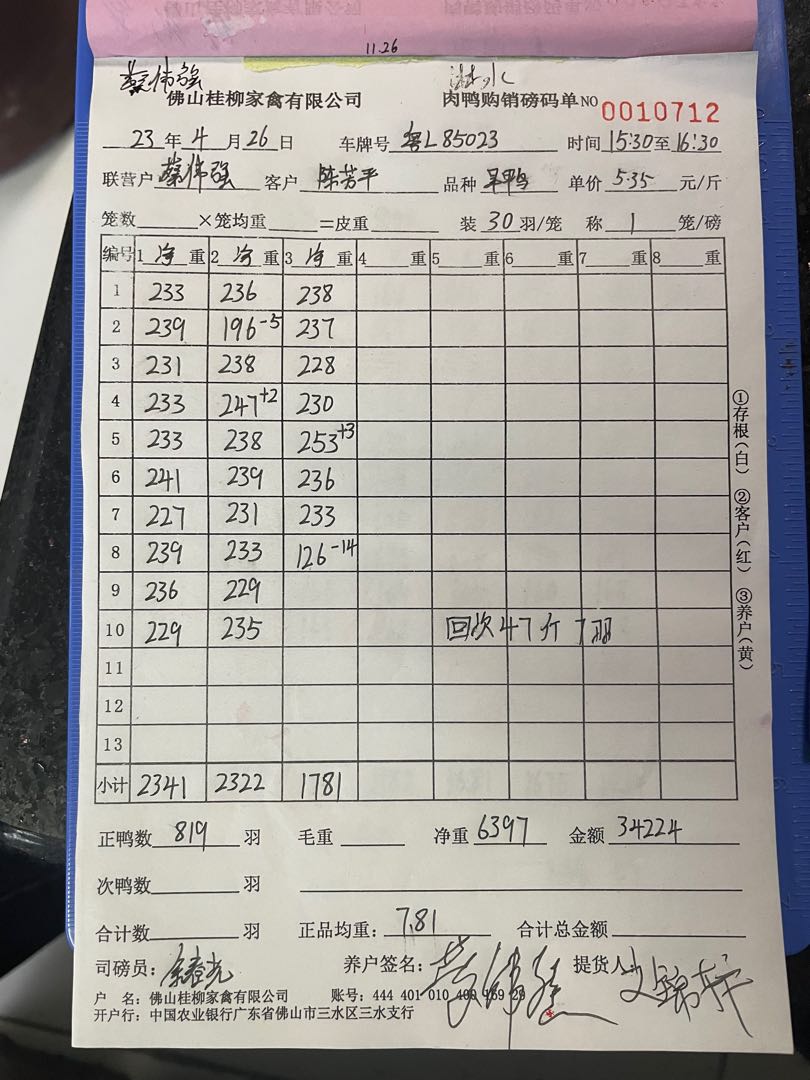 11.26
蔡伟强 淋水
佛山桂柳家禽有限公司 肉鸭购销磅码单 NO 0010712
23年4月26日 车牌号 粤L85023 时间 15:30至16:30
联营户 蔡伟强 客户 陈芳平 品种 旱鸭 单价 5.35 元/斤
笼数 ×笼均重 =皮重 装 30 羽/笼 称 1 笼/磅
编号 1 净 重 2 净 重 3 净 重 4 重 5 重 6 重 7 重 8 重
1 233 236 238
2 239 196-5 237
3 231 238 228
4 233 247+2 230
5 233 238 253+3
6 241 239 236
7 227 231 233
8 239 233 126-14
9 236 229
10 229 235 回次47斤 7羽
11
12
13
小计 2341 2322 1781
①存根(白) ②客户(红) ③养户(黄)
正鸭数 819 羽 毛重 净重 6397 金额 34224
次鸭数 羽
合计数 羽 正品均重: 7.81 合计总金额
司磅员: 养户签名: 提货人
户 名: 佛山桂柳家禽有限公司 账号: 444 401 010 400
开户行: 中国农业银行广东省佛山市三水区三水支行